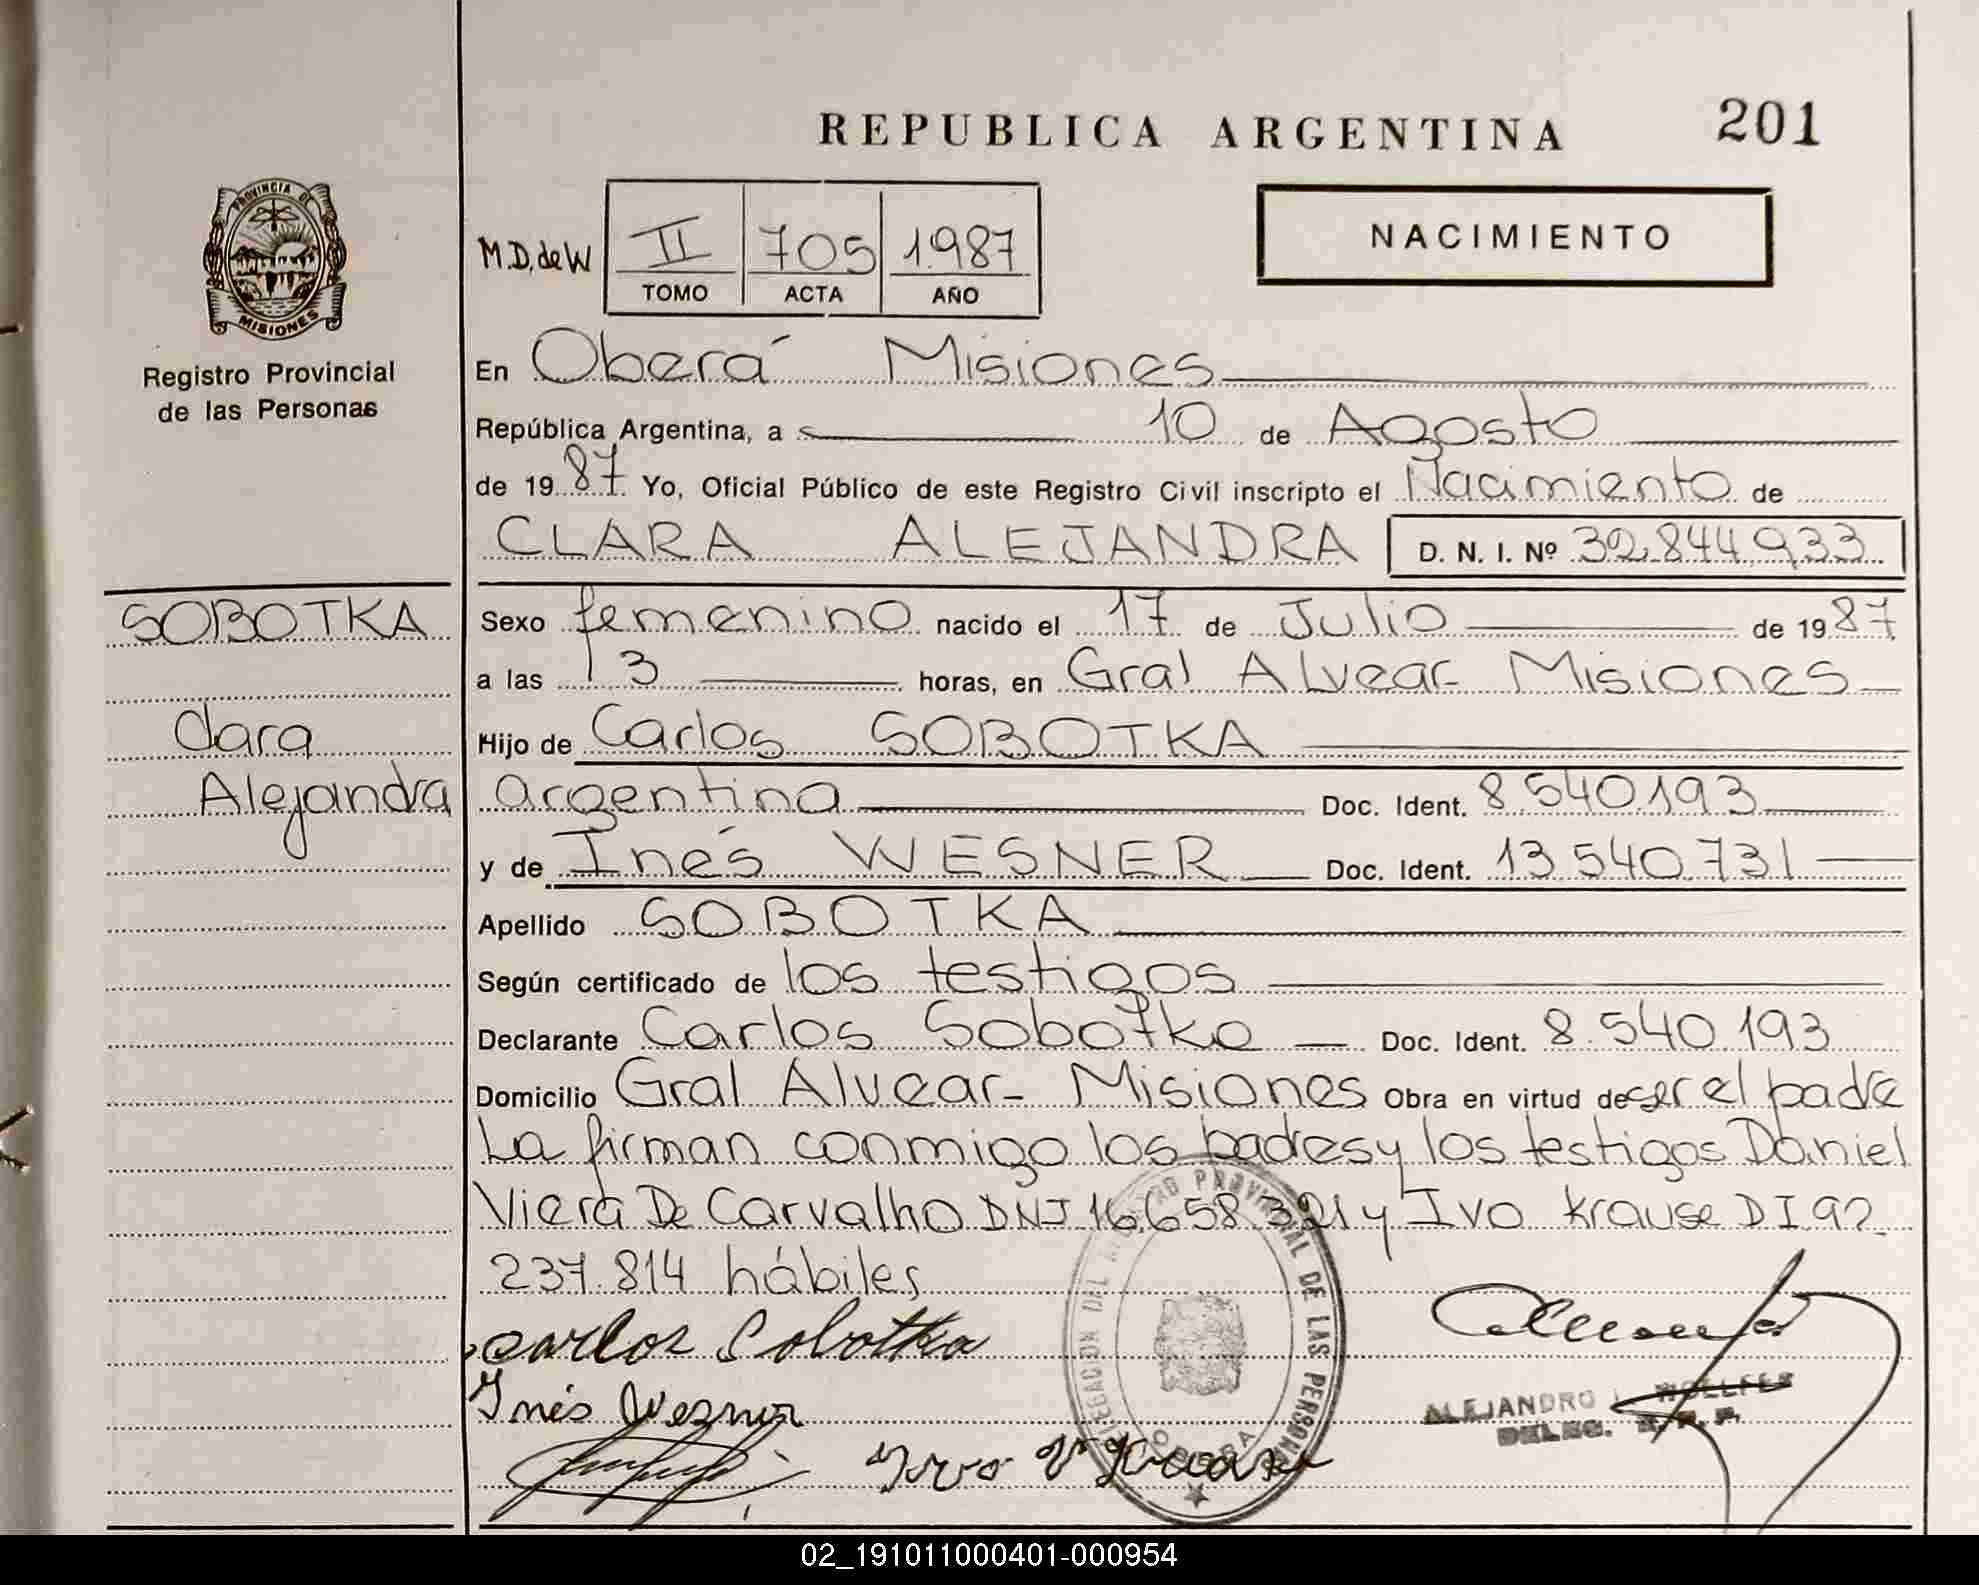 REPUBLICA ARGENTINA 201
PROVINCIA DE
MISIONES
Registro Provincial
de las Personas
M.D. de W
II 705 1987
TOMO ACTA AÑO
NACIMIENTO
En Oberá Misiones
República Argentina, a 10 de Agosto
de 1987. Yo, Oficial Público de este Registro Civil inscripto el Nacimiento de
CLARA ALEJANDRA D. N. I. Nº 32.844.933
SOBOTKA
Clara
Alejandra
Sexo femenino nacido el 17 de Julio de 1987
a las 13 horas, en Gral Alvear Misiones
Hijo de Carlos SOBOTKA
argentina Doc. Ident. 8.540.193
y de Inés WESNER Doc. Ident. 13.540.731
Apellido SOBOTKA
Según certificado de los testigos
Declarante Carlos Sobotka Doc. Ident. 8.540.193
Domicilio Gral Alvear - Misiones Obra en virtud de ser el padre
La firman conmigo los padres y los testigos Daniel
Viera De Carvalho DNI 16.658.321 y Ivo Krause DI 92
237.814 hábiles
Carlos Sobotka
Inés Wezner
Ivo
DELEGACION DEL REGISTRO PROVINCIAL DE LAS PERSONAS
OBERA
ALEJANDRO
DELEG. R. P. P.
02_191011000401-000954